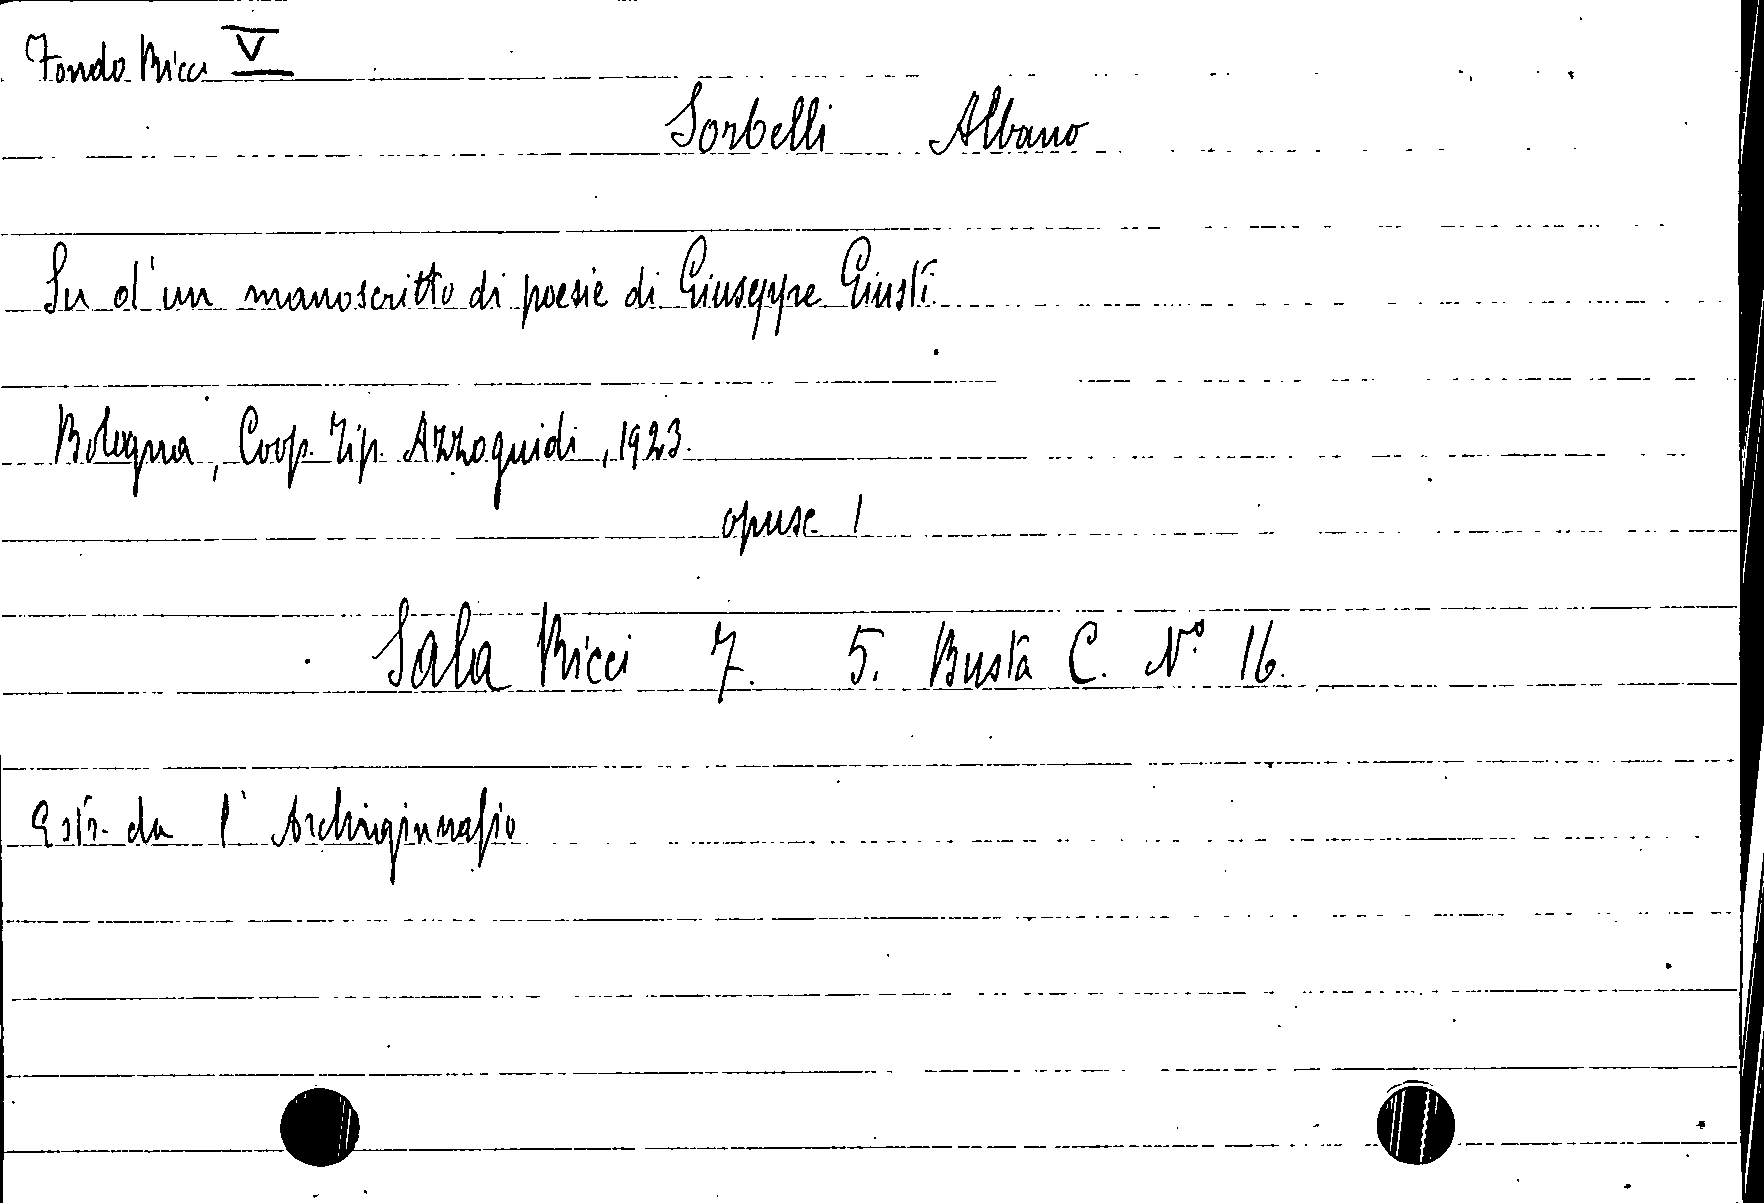 Fondo Ricci V
Sorbelli Albano
Su d'un manoscritto di poesie di Giuseppe Giusti
Bologna, Coop. Tip. Azzoguidi, 1923.
opusc 1
Sala Ricci 7. 5. Busta C. N.° 16.
Estr. da l'Archiginnasio